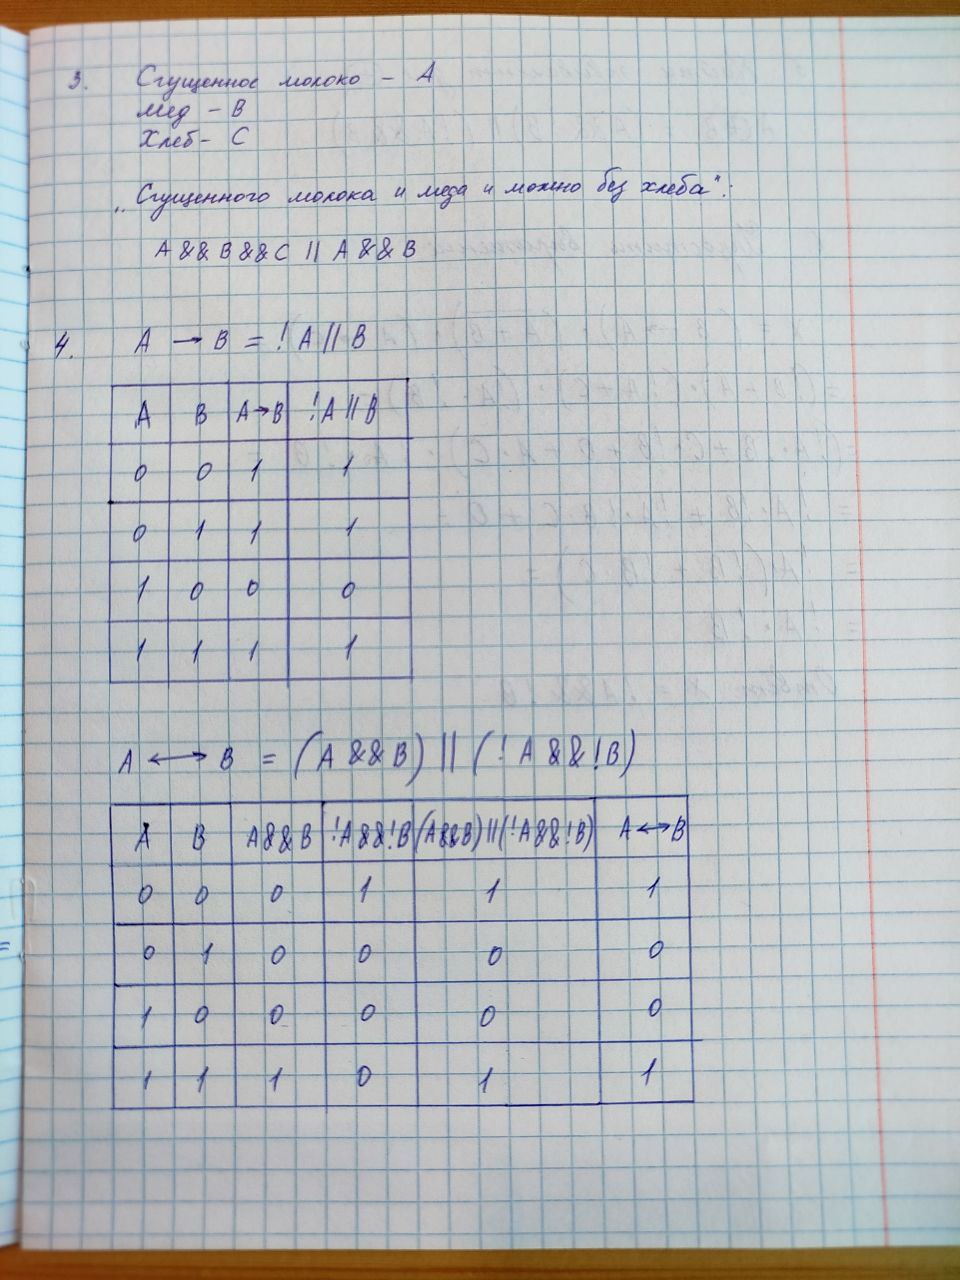 3. Сгущенное молоко - A
Мед - B
Хлеб - C
„Сгущенного молока и меда и можно без хлеба":
A && B && C || A && B
4. A → B = !A || B
A B A→B !A||B
0 0 1 1
0 1 1 1
1 0 0 0
1 1 1 1
A ⟷ B = (A && B) || (!A && !B)
A B A&&B !A&&!B (A&&B)||(!A&&!B) A⟷B
0 0 0 1 1 1
0 1 0 0 0 0
1 0 0 0 0 0
1 1 1 0 1 1